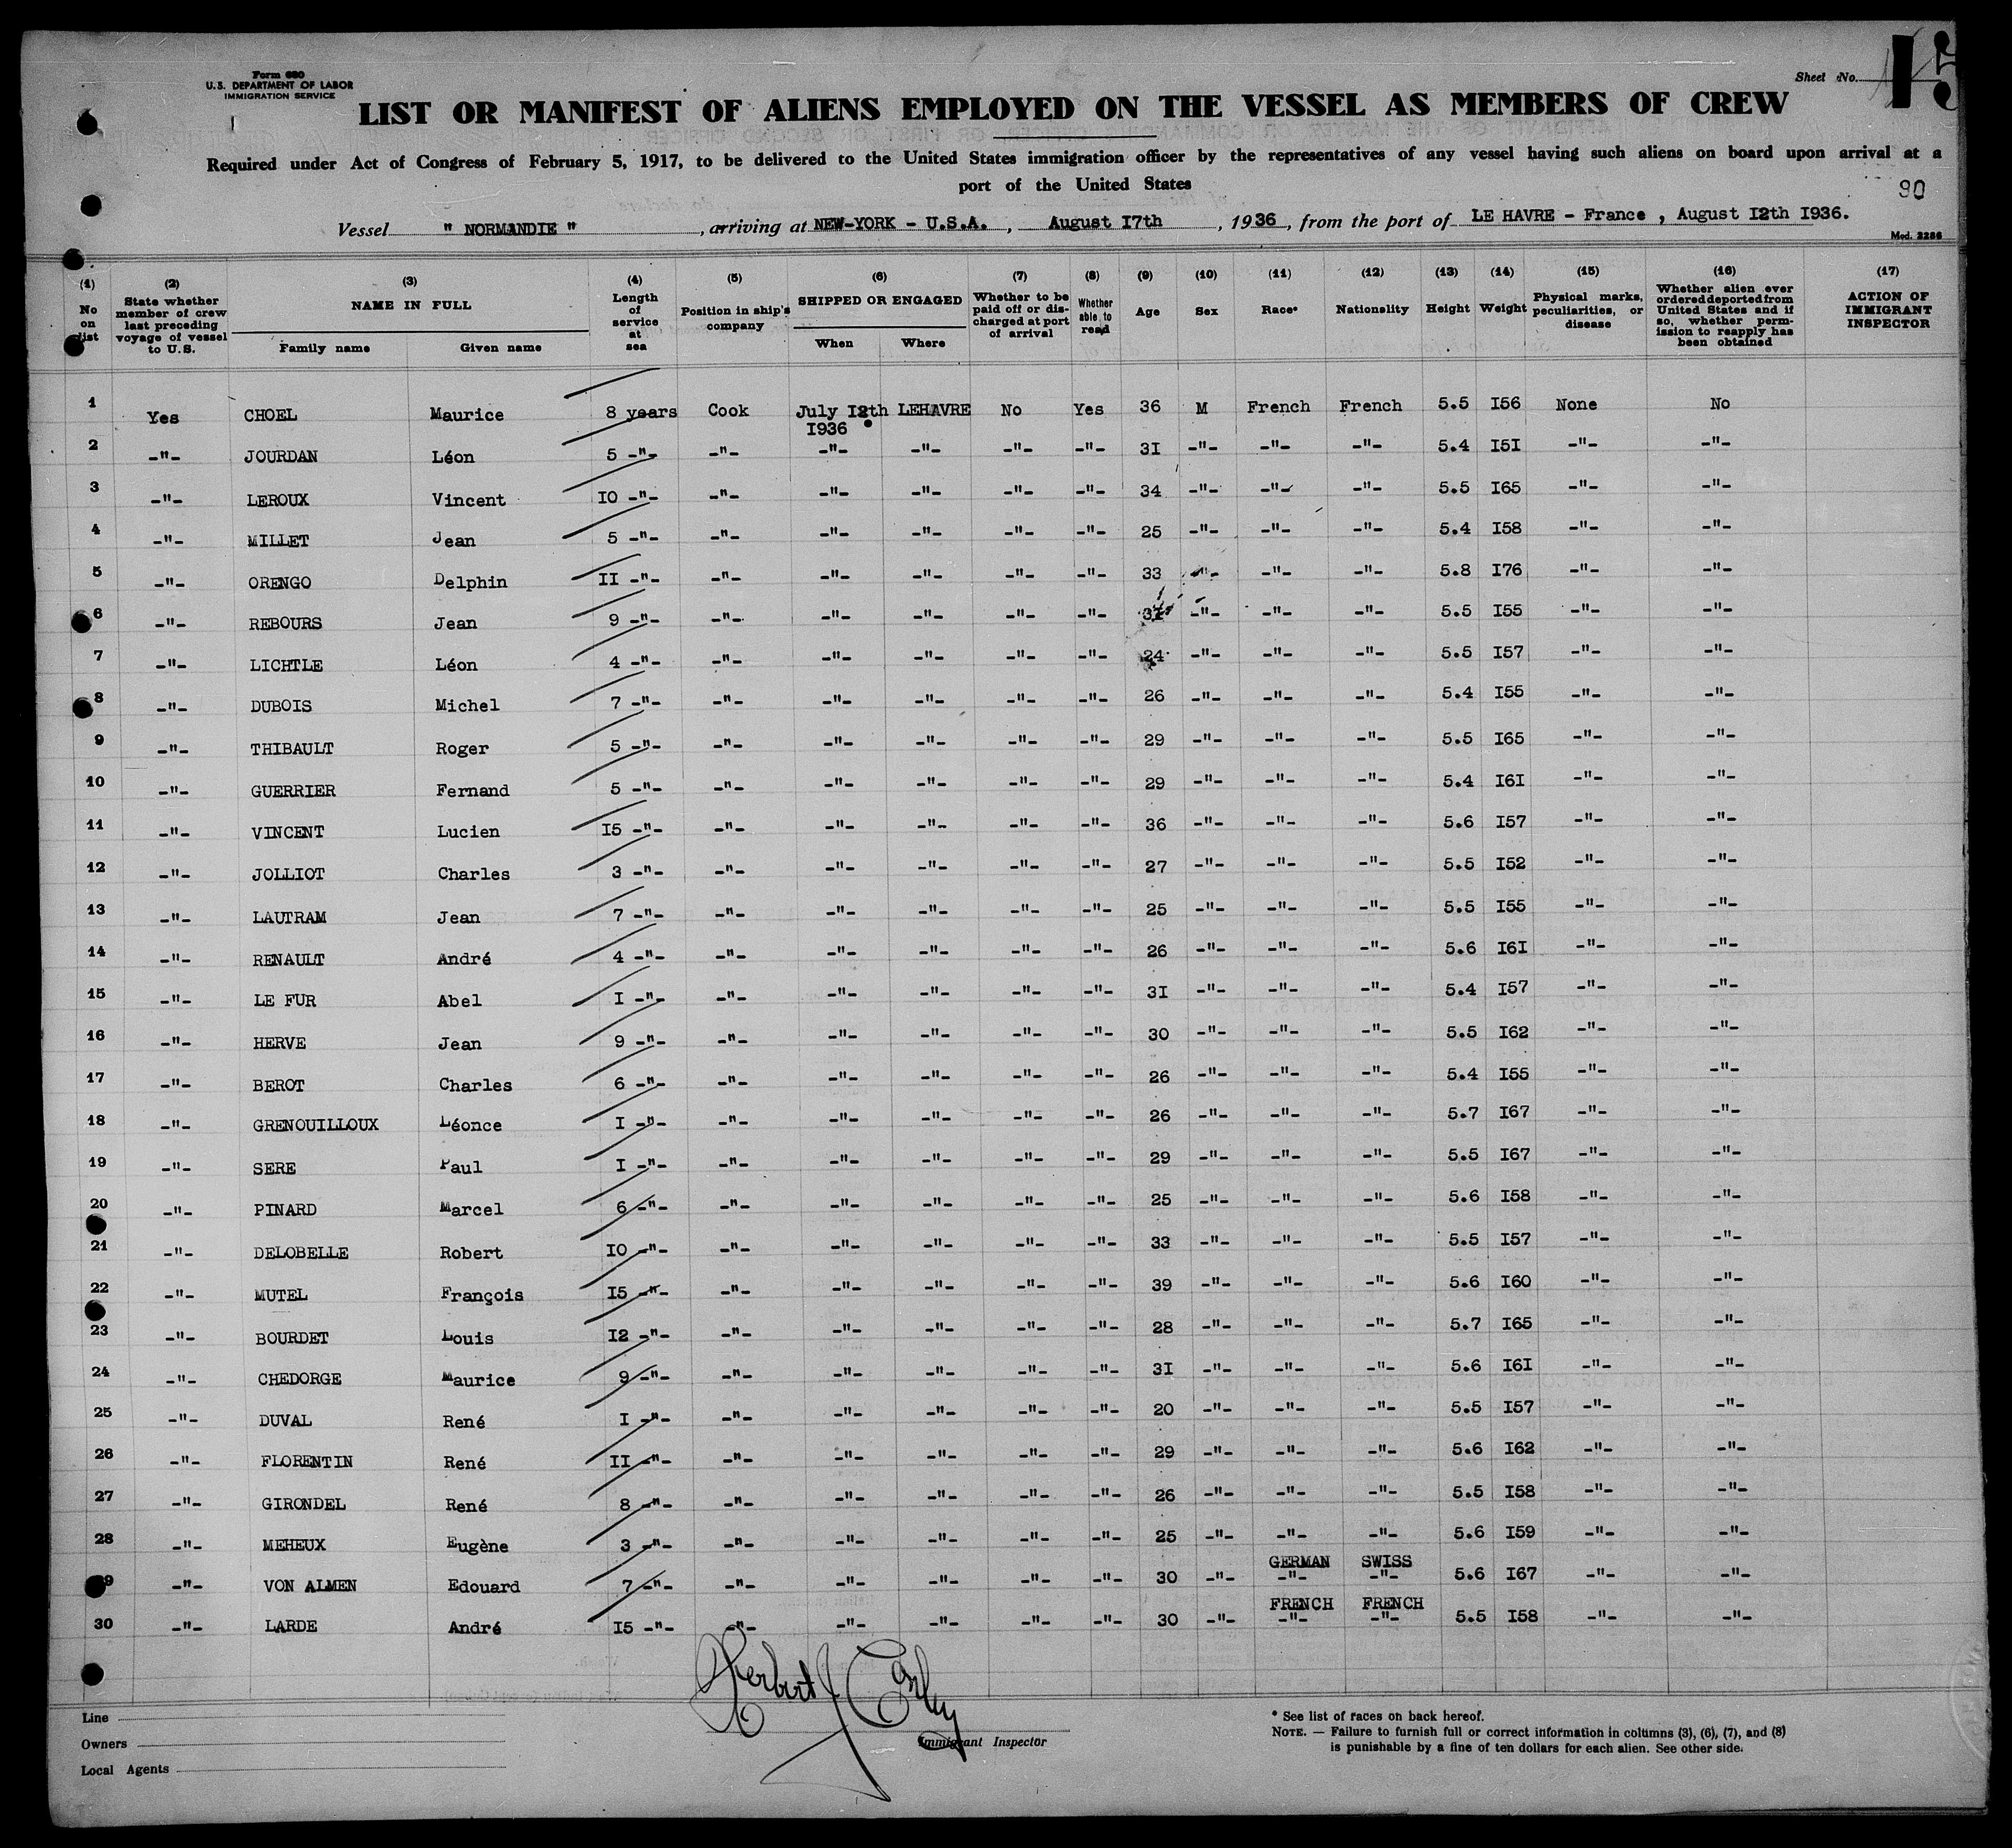 Form 680
U.S. DEPARTMENT OF LABOR
IMMIGRATION SERVICE
Sheet No. 15
LIST OR MANIFEST OF ALIENS EMPLOYED ON THE VESSEL AS MEMBERS OF CREW
Required under Act of Congress of February 5, 1917, to be delivered to the United States immigration officer by the representatives of any vessel having such aliens on board upon arrival at a
port of the United States
90
Vessel " NORMANDIE ", arriving at NEW-YORK - U.S.A. , August I7th , 1936, from the port of LE HAVRE - France , August I2th I936.
Mod. 2286
(1) No on list (2) State whether member of crew last preceding voyage of vessel to U.S. (3) NAME IN FULL Family name Given name (4) Length of service at sea (5) Position in ship's company (6) SHIPPED OR ENGAGED When Where (7) Whether to be paid off or discharged at port of arrival (8) Whether able to read (9) Age (10) Sex (11) Race* (12) Nationality (13) Height (14) Weight (15) Physical marks, peculiarities, or disease (16) Whether alien ever ordered deported from United States and if so, whether permission to reapply has been obtained (17) ACTION OF IMMIGRANT INSPECTOR
1 Yes CHOEL Maurice 8 years Cook July I2th I936 LEHAVRE No Yes 36 M French French 5.5 I56 None No
2 -"- JOURDAN Léon 5 -"- -"- -"- -"- -"- -"- 3I -"- -"- -"- 5.4 I5I -"- -"-
3 -"- LEROUX Vincent I0 -"- -"- -"- -"- -"- -"- 34 -"- -"- -"- 5.5 I65 -"- -"-
4 -"- MILLET Jean 5 -"- -"- -"- -"- -"- -"- 25 -"- -"- -"- 5.4 I58 -"- -"-
5 -"- ORENGO Delphin II -"- -"- -"- -"- -"- -"- 33 -"- -"- -"- 5.8 I76 -"- -"-
6 -"- REBOURS Jean 9 -"- -"- -"- -"- -"- -"- 3I -"- -"- -"- 5.5 I55 -"- -"-
7 -"- LICHTLE Léon 4 -"- -"- -"- -"- -"- -"- 24 -"- -"- -"- 5.5 I57 -"- -"-
8 -"- DUBOIS Michel 7 -"- -"- -"- -"- -"- -"- 26 -"- -"- -"- 5.4 I55 -"- -"-
9 -"- THIBAULT Roger 5 -"- -"- -"- -"- -"- -"- 29 -"- -"- -"- 5.5 I65 -"- -"-
10 -"- GUERRIER Fernand 5 -"- -"- -"- -"- -"- -"- 29 -"- -"- -"- 5.4 I6I -"- -"-
11 -"- VINCENT Lucien I5 -"- -"- -"- -"- -"- -"- 36 -"- -"- -"- 5.6 I57 -"- -"-
12 -"- JOLLIOT Charles 3 -"- -"- -"- -"- -"- -"- 27 -"- -"- -"- 5.5 I52 -"- -"-
13 -"- LAUTRAM Jean 7 -"- -"- -"- -"- -"- -"- 25 -"- -"- -"- 5.5 I55 -"- -"-
14 -"- RENAULT André 4 -"- -"- -"- -"- -"- -"- 26 -"- -"- -"- 5.6 I6I -"- -"-
15 -"- LE FUR Abel I -"- -"- -"- -"- -"- -"- 3I -"- -"- -"- 5.4 I57 -"- -"-
16 -"- HERVE Jean 9 -"- -"- -"- -"- -"- -"- 30 -"- -"- -"- 5.5 I62 -"- -"-
17 -"- BEROT Charles 6 -"- -"- -"- -"- -"- -"- 26 -"- -"- -"- 5.4 I55 -"- -"-
18 -"- GRENOUILLOUX Léonce I -"- -"- -"- -"- -"- -"- 26 -"- -"- -"- 5.7 I67 -"- -"-
19 -"- SERE Paul I -"- -"- -"- -"- -"- -"- 29 -"- -"- -"- 5.5 I67 -"- -"-
20 -"- PINARD Marcel 6 -"- -"- -"- -"- -"- -"- 25 -"- -"- -"- 5.6 I58 -"- -"-
21 -"- DELOBELLE Robert I0 -"- -"- -"- -"- -"- -"- 33 -"- -"- -"- 5.5 I57 -"- -"-
22 -"- MUTEL François I5 -"- -"- -"- -"- -"- -"- 39 -"- -"- -"- 5.6 I60 -"- -"-
23 -"- BOURDET Louis I2 -"- -"- -"- -"- -"- -"- 28 -"- -"- -"- 5.7 I65 -"- -"-
24 -"- CHEDORGE Maurice 9 -"- -"- -"- -"- -"- -"- 3I -"- -"- -"- 5.6 I6I -"- -"-
25 -"- DUVAL René I -"- -"- -"- -"- -"- -"- 20 -"- -"- -"- 5.5 I57 -"- -"-
26 -"- FLORENTIN René II -"- -"- -"- -"- -"- -"- 29 -"- -"- -"- 5.6 I62 -"- -"-
27 -"- GIRONDEL René 8 -"- -"- -"- -"- -"- -"- 26 -"- -"- -"- 5.5 I58 -"- -"-
28 -"- MEHEUX Eugène 3 -"- -"- -"- -"- -"- -"- 25 -"- -"- -"- 5.6 I59 -"- -"-
29 -"- VON ALMEN Edouard 7 -"- -"- -"- -"- -"- -"- 30 -"- GERMAN -"- SWISS -"- 5.6 I67 -"- -"-
30 -"- LARDE André I5 -"- -"- -"- -"- -"- -"- 30 -"- FRENCH -"- FRENCH -"- 5.5 I58 -"- -"-
Herbert J
Immigrant Inspector
Line
Owners
Local Agents
* See list of races on back hereof.
NOTE. — Failure to furnish full or correct information in columns (3), (6), (7), and (8)
is punishable by a fine of ten dollars for each alien. See other side.